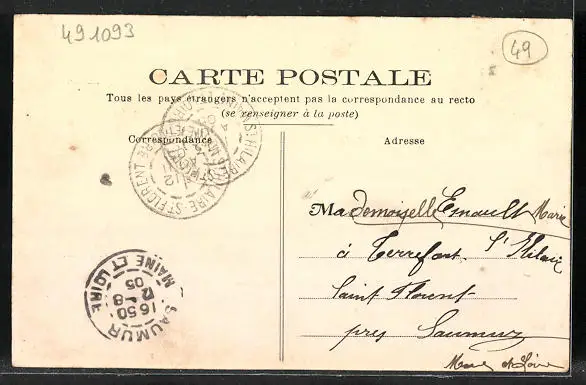 491093
49
CARTE POSTALE
Tous les pays étrangers n'acceptent pas la correspondance au recto
(se renseigner à la poste)
Correspondance
Adresse
Mademoiselle Esnault Marie
à Terrefort St Hilaire
Saint Florent
près Saumur
Maine et Loire
SAUMUR
MAINE ET LOIRE
16 50
12 -8
05